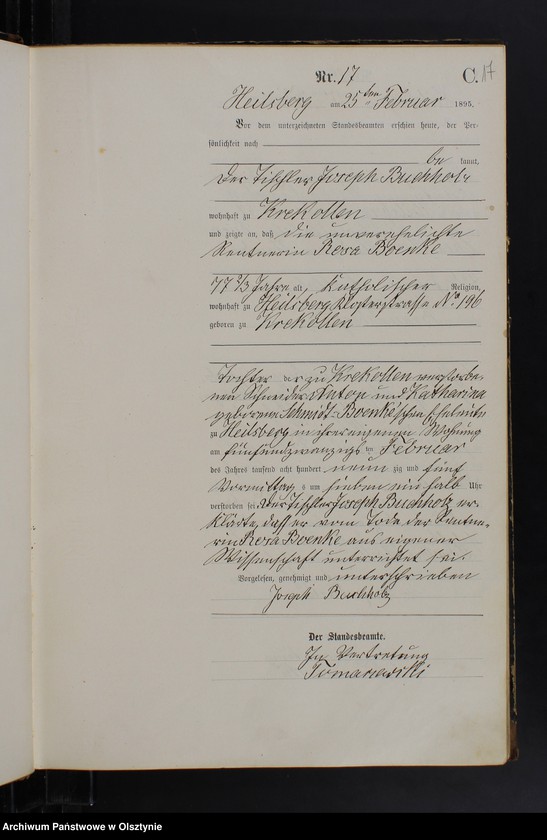 Nr. 17
C. 17
Heilsberg am 25ten Februar 1895.
Vor dem unterzeichneten Standesbeamten erschien heute, der Per-
sönlichkeit nach
be kannt,
der Tischler Joseph Buchholz
wohnhaft zu Krekollen
und zeigte an, daß die unverehelichte
Rentnerin Rosa Boenke
77 2/3 Jahre alt, Katholischer Religion,
wohnhaft zu Heilsberg Klosterstrasse No 196
geboren zu Krekollen
Tochter der zu Krekollen verstorbe-
nen Schneider Anton und Katharina
geborene Schmidt-Boenke'schen Eheleute
zu Heilsberg in ihrer eigenen Wohnung
am fünfundzwanzigsten Februar
des Jahres tausend acht hundert neunzig und fünf
Vormittags um sieben ein halb Uhr
verstorben sei. Der Tischler Joseph Buchholz er-
klärte, dass er vom Tode der Rentne-
rin Rosa Boenke aus eigener
Wissenschaft unterrichtet sei.
Vorgelesen, genehmigt und unterschrieben
Joseph Buchholz
Der Standesbeamte.
In Vertretung
Archiwum Państwowe w Olsztynie